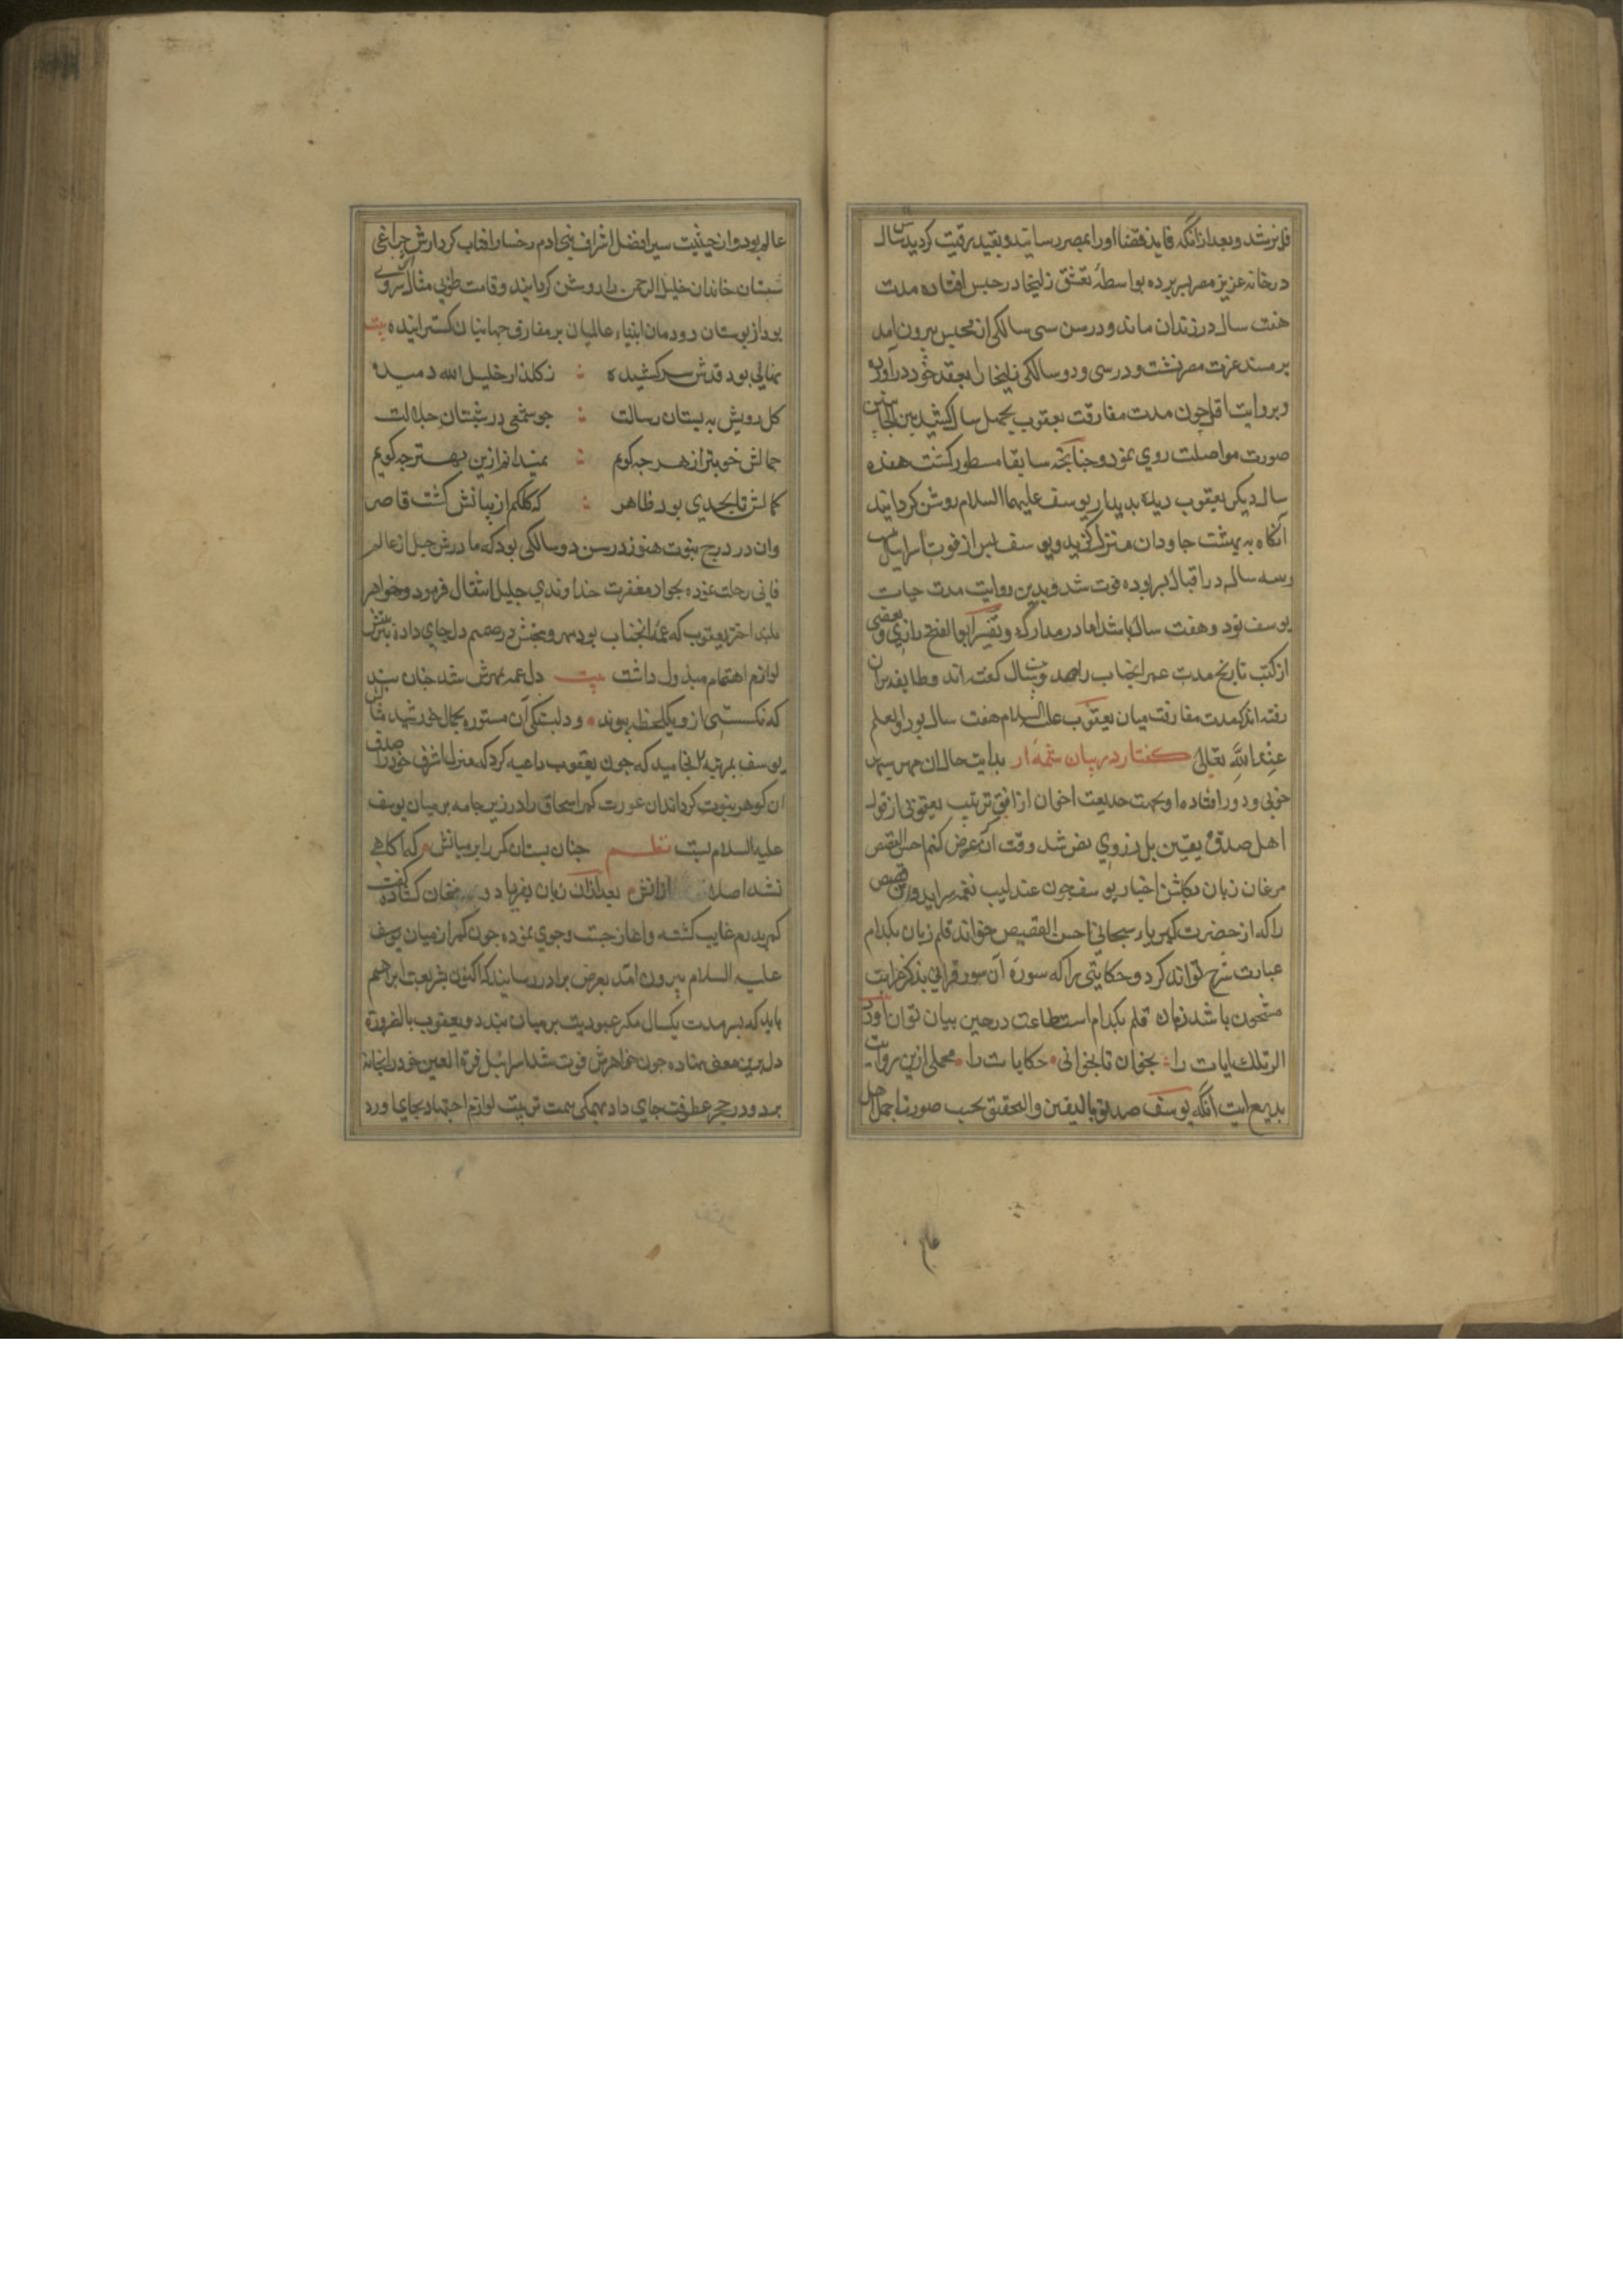 در خانه عزیز مصر بسر برده بواسطهٔ تعشق زلیخا در حبس افتاده مدت
هفت سال در زندان ماند و در سن سی سالکی از محبس بیرون امد
بر مسند عزت مصر نشست و در سی و دو سالکی زلیخا را بعقد خود در آورد
و بروایت اقل چون مدت مفارقت یعقوب بچهل سال کشید بین الجانبین
صورت مواصلت روی نمود و چنانچه سابقا مسطور کشت هفده
سال دیکر یعقوب دیده بدیدار یوسف علیهما السلام روشن کردانید
آنکاه به بهشت جاودان منزل کزید و یوسف بس از فوت اسراییل
سه سال در اقبال بسر برده فوت شد و بدین روایت مدت حیات
یوسف نود و هفت سال باشد اما در مدارک و تفسیر ابو الفتح رازی و بعضی
از کتب تاریخ مدت عمر انجناب را صد و بیست سال کفته اند و طایفه بران
رفته اند که مدت مفارقت میان یعقوب علیه السلام هفت سال بود و العلم
عند الله تعالی کفتار در بیان شمه از بدایت حال ان مهر سپهر
خوبی و دور افتاده او بجهت خدیعت اخوان از افق تربیت یعقوبی از قول
اهل صدق و یقین
مرغان زبان بکلشن اخبار یوسف چون عندلیب نغمه سراید و این قصص
را که از حضرت کبریاء سبحانی احسن القصص خواند قلم زبان بکدام
عبارت شرح تواند کرد و حکایتی را که سورهٔ آن سور قرانی بذکر غرایب
مشحون باشد زمان قلم بکدام استطاعت در حین بیان توان آورد
الر تلک ایات را بخوان تا بخوانی حکایات را مجملی ازین روایت
بدیع ایت آنکه یوسف صدیق بالیقین و التحقیق بحسب صورت اجمل اهل
عالم بود و از حیثیت سیر افضل اشراف بنی ادم رخسار افتاب کردارش چراغی
شبستان خاندان خلیل الرحمن را روشن کردانید و قامت طوبی مثالش سروی
بود از بوستان دودمان انبیاء عالمیان بر مفارق جهانیان کسترانیده بیت
نهالی بود قدش سر کشیده ز کلذار خلیل الله دمیده
کل رویش به بستان رسالت چو شمعی در شبستان جلالت
جمالش خوبتر از هر چه کویم نمیدانم ازین بهتر چه کویم
کمالش تا بحدی بود ظاهر که کلکم از بیانش کشت قاصر
وان در درج نبوت هنوز در سن دو سالکی بود که مادرش راحیل از عالم
فانی رحلت نموده بجوار مغفرت خداوندی جلیل انتقال فرمود و خواهر
لوازم اهتمام مبذول داشت بیت دل عمه بمهرش شد چنان بند
که نکسستی ازو یکلحظه پیوند و دلبستکی آن مستوره بجمال خورشید مثال
یوسف بمرتبه انجامید که چون یعقوب داعیه کرد که منزل با شرف خود را صدف
ان کوهر نبوت کرداند ان عورت کمر اسحاق را در زیر جامه بر میان یوسف
علیه السلام بست نظم چنان بست ان کمر را بر میانش که آکاهی
نشد اصلا ازانش بعد ازان زبان بفریاد و فغان کشاده کفت
کمر پدرم غایب کشته و اغاز جست و جوی نموده چون کمر از میان یوسف
علیه السلام بیرون امد بعرض برادر رسانید که اکنون بشریعت ابراهیم
باید که بسر مدت یکسال کمر عبودیت بر میان بندد و یعقوب بالضرورة
دل برین معنی نهاده چون خواهرش فوت شد اسراییل قرة العین خود را بخانه
برد و در حجر عطوفت جای داد بهمکی همت تربیت لوازم اجتهاد بجای اورد